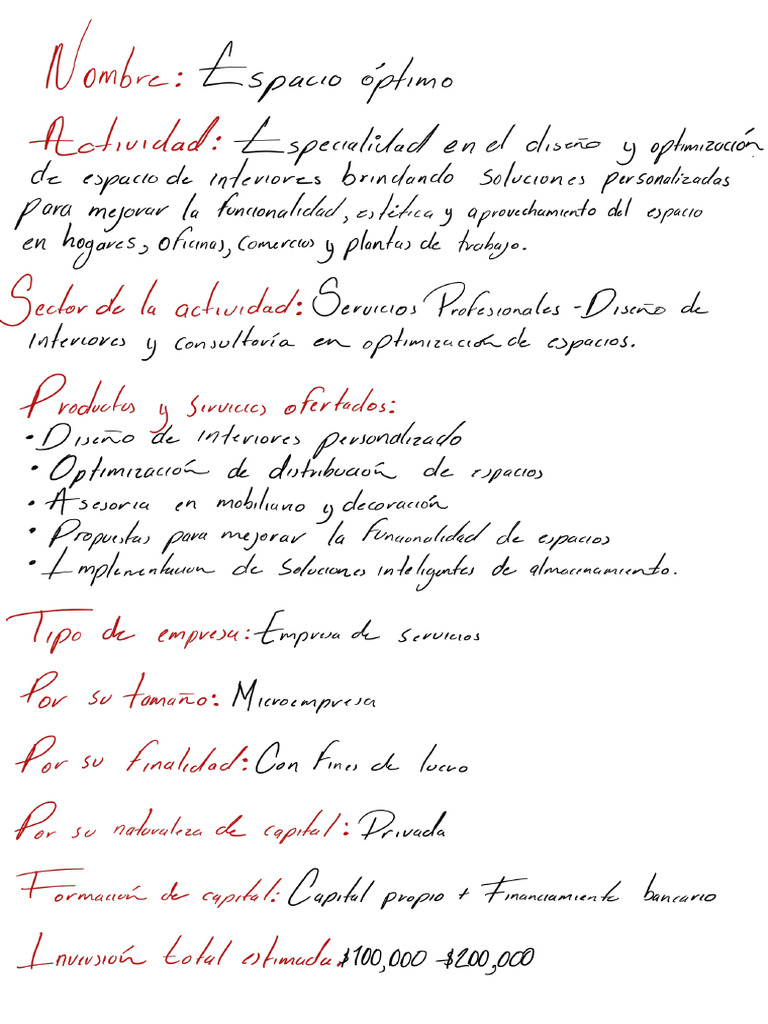 Nombre: Espacio óptimo
Actividad: Especialidad en el diseño y optimización
de espacio de interiores brindando soluciones personalizadas
para mejorar la funcionalidad, estética y aprovechamiento del espacio
en hogares, oficinas, comercios y plantas de trabajo.
Sector de la actividad: Servicios Profesionales - Diseño de
interiores y consultoría en optimización de espacios.
Productos y servicios ofertados:
• Diseño de interiores personalizado
• Optimización de distribución de espacios
• Asesoria en mobiliario y decoración
• Propuestas para mejorar la funcionalidad de espacios
• Implementacion de soluciones inteligentes de almacenamiento.
Tipo de empresa: Empresa de servicios
Por su tamaño: Microempresa
Por su finalidad: Con fines de lucro
Por su naturaleza de capital: Privada
Formación de capital: Capital propio + Financiamiento bancario
Inversión total estimada: $100,000 - $200,000